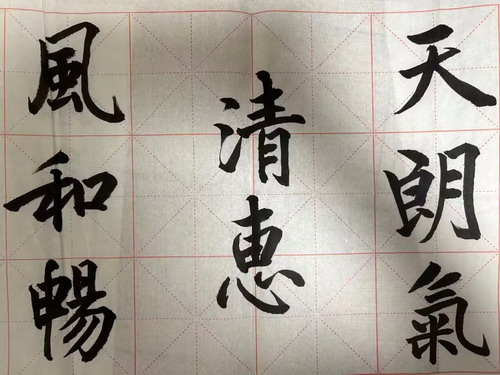 天朗氣
清惠
風和暢